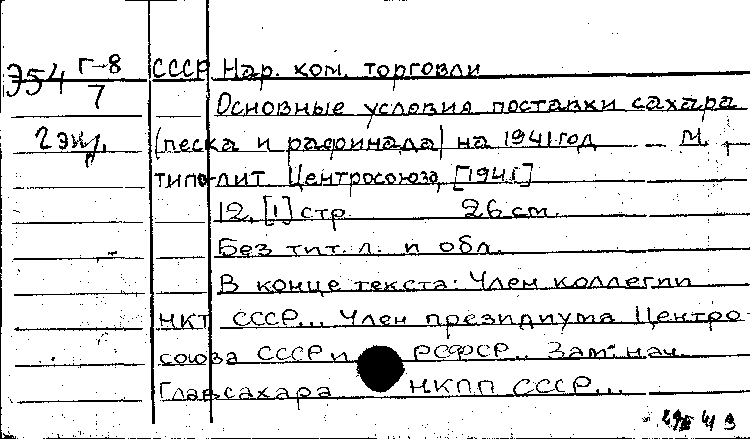 Э54 Г-8/7 СССР Нар. ком. торговли
Основные условия поставки сахара
2 экз. (песка и рафинада) на 1941 год М.,
типо-лит Центросоюза, [1941]
12, [1] стр. 26 см.
Без тит. л. и обл.
В конце текста: Член коллегии
НКТ СССР... Член президиума Центро
союза СССР и РСФСР... Зам. нач.
Главсахара НКПП СССР...